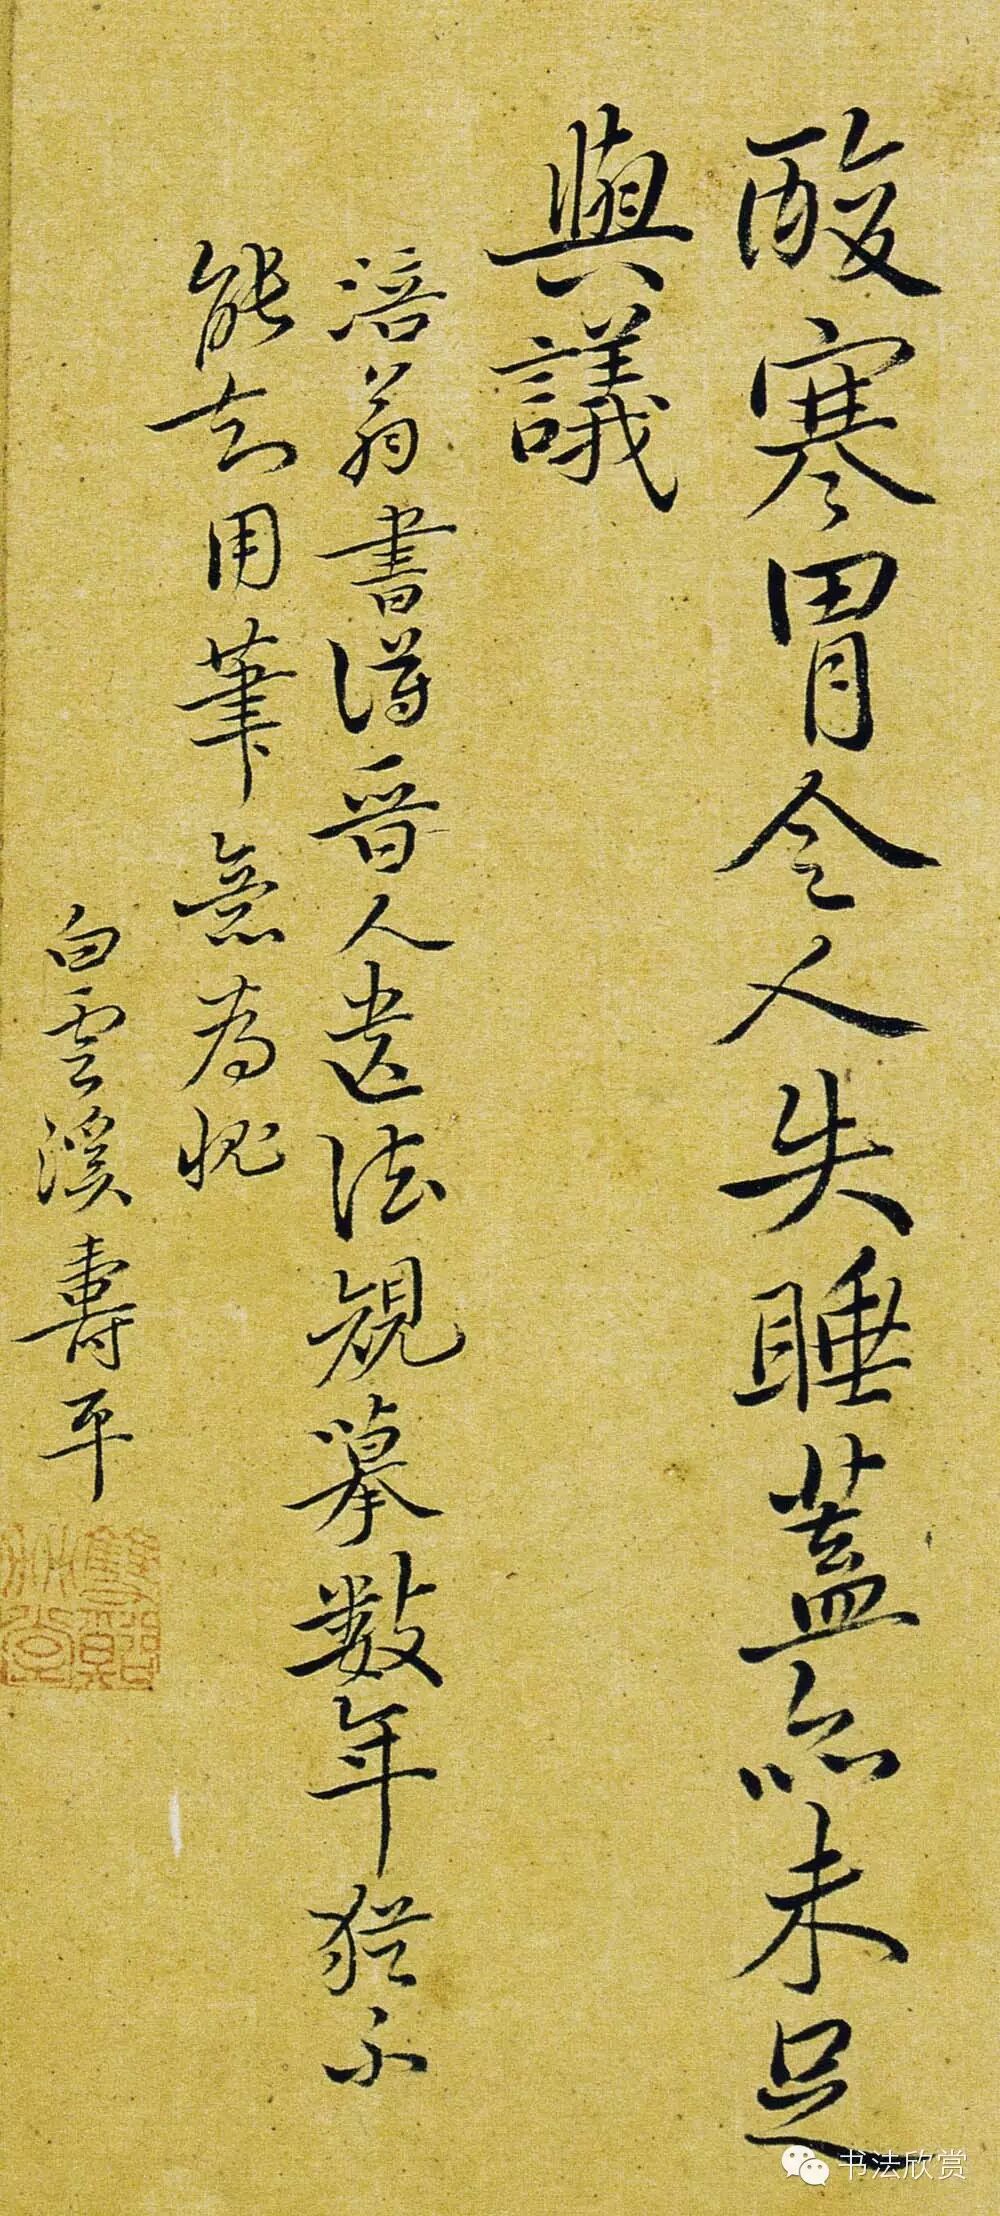 酸寒胃令人失睡蓋亦未足
與議
涪翁書得晉人遺法規摹數年猶不
能知用筆意為愧
白雲溪壽平
书法欣赏